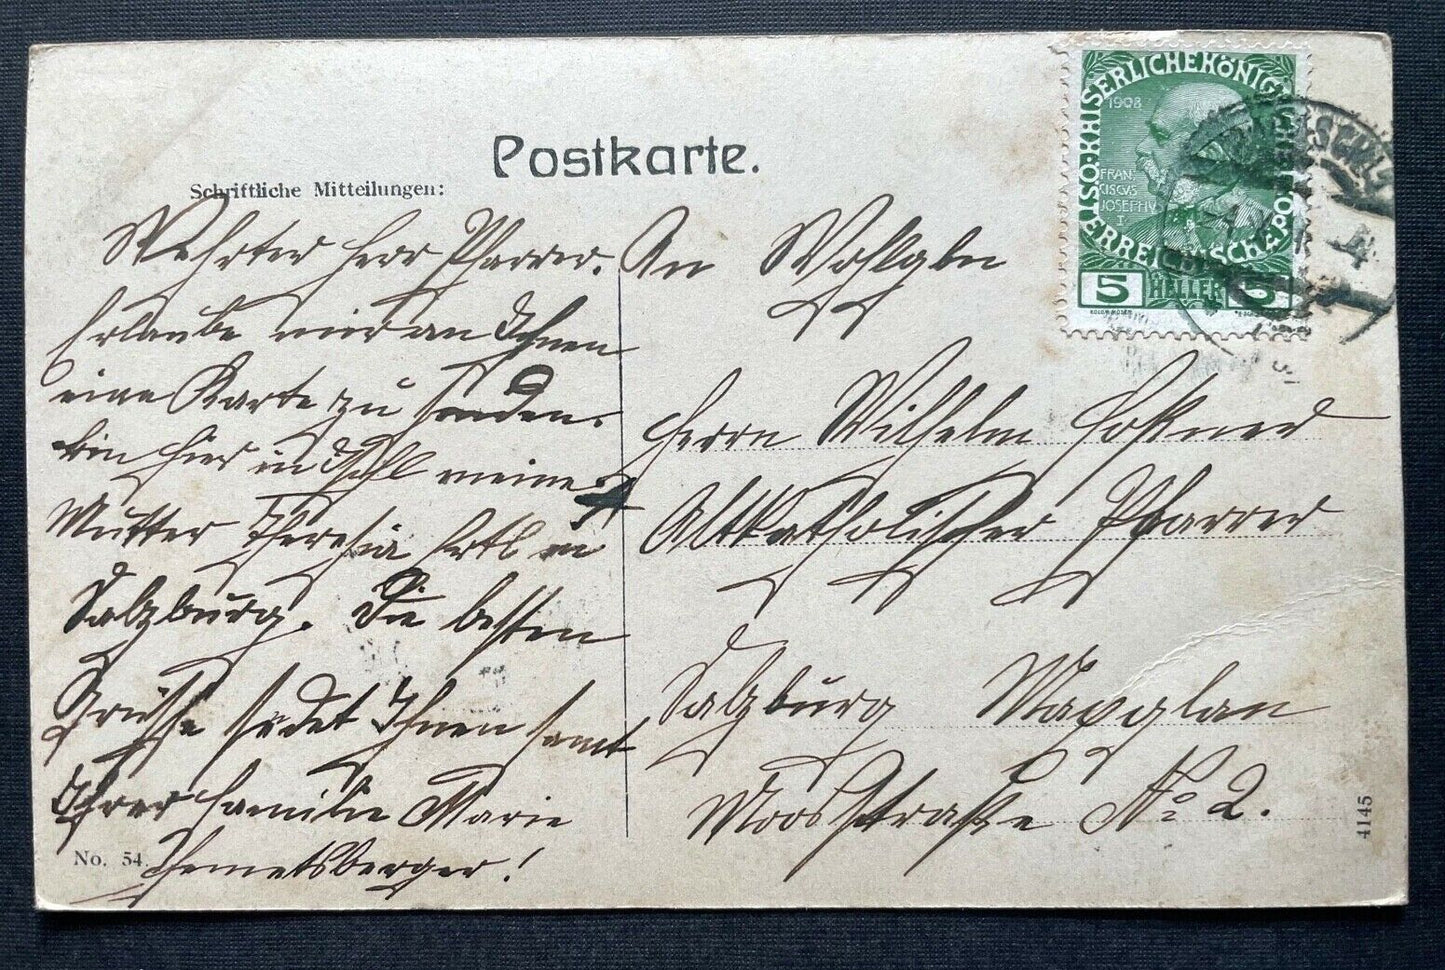 Postkarte.
Schriftliche Mitteilungen:
Wehrter Herr Pfarrer.
Erlaube mir an Ihnen
eine Karte zu senden.
bin hier in Ischl meine
Mutter Theresia Ertl in
Salzburg. Die besten
Grüsse sedet Ihnen samt
Ihrer Familie Marie
No. 54.
An Wohlgbn
Herrn Wilhelm
Altkatholischer Pfarrer
Salzburg Maxglan
Moosstraße No 2.
4145
KAISERLICHEKÖNIGLICHE
ÖSTERREICHISCHE POST
1908
FRAN
CISCVS
JOSEPHV
I
5 HELLER 5